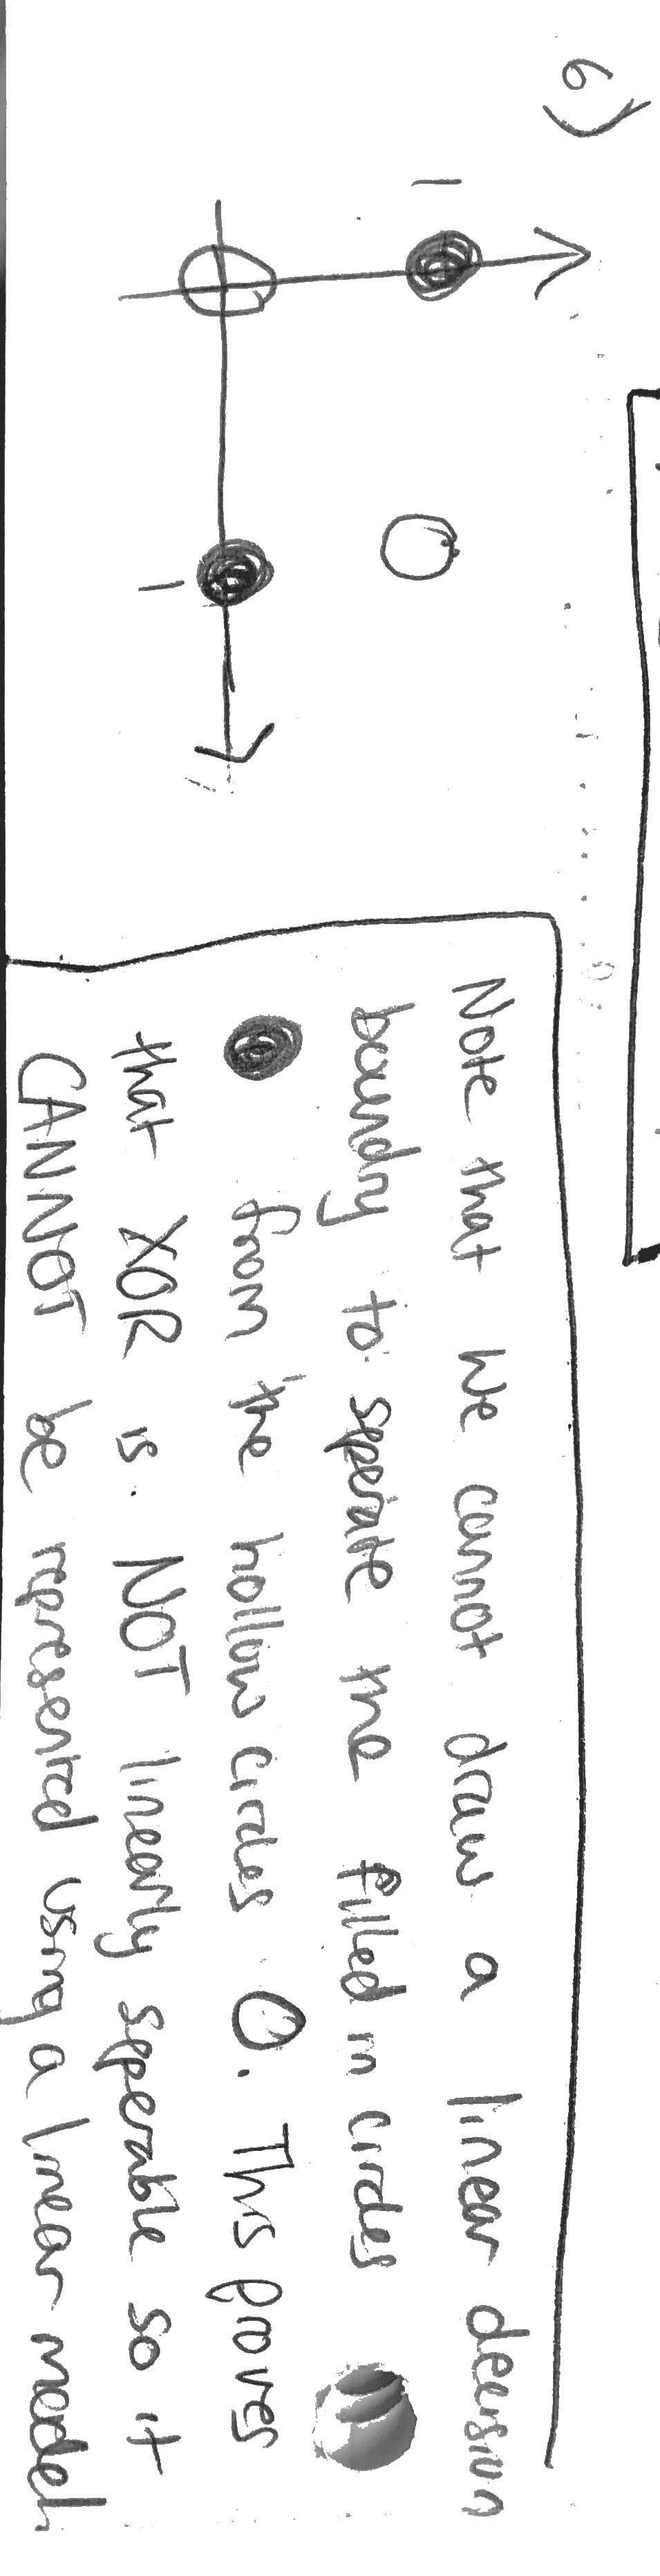 6)
1
1
Note that we cannot draw a linear decision
boundry to seperate the filled in circles
from the hollow circles O. This proves
that XOR is NOT linearly seperable so it
CANNOT be represented using a linear model.